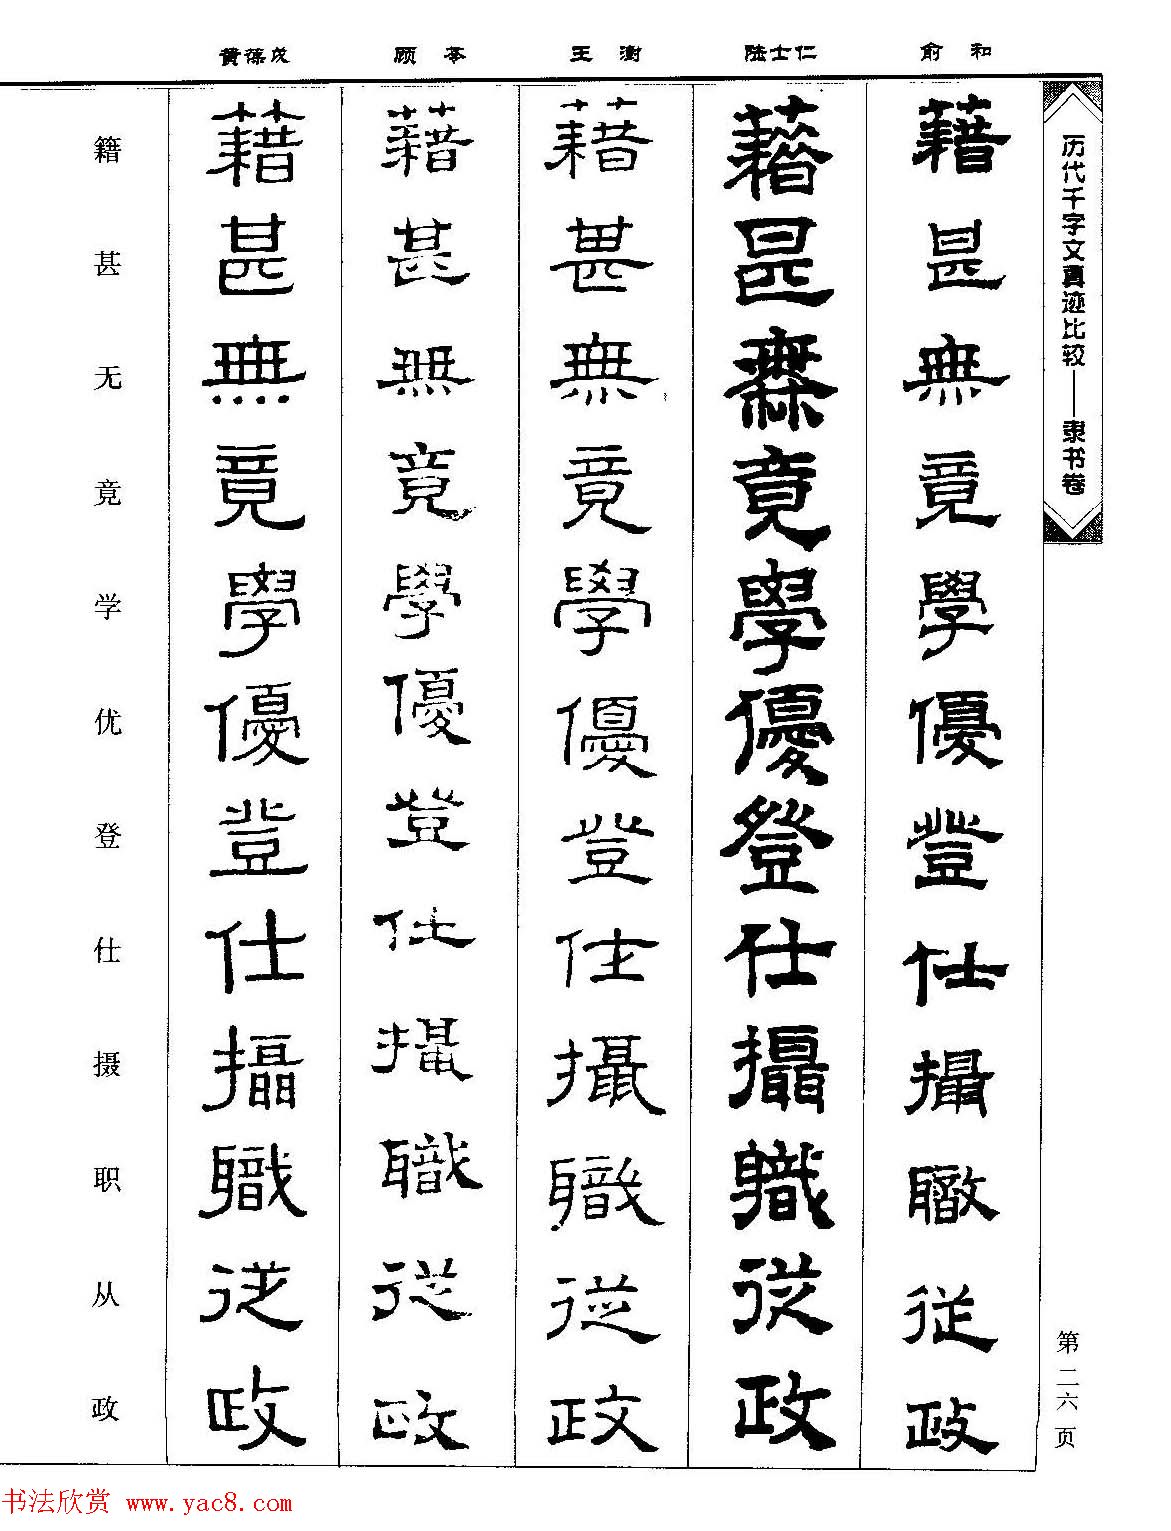 俞和
陆士仁
王澍
顾苓
黄葆戉
历代千字文真迹比较——隶书卷
第二六页
藉甚無竟學優登仕攝職從政
藉甚無竟學優登仕攝職從政
藉甚無竟學優登仕攝職從政
藉甚無竟學優登仕攝職從政
藉甚無竟學優登仕攝職從政
籍甚无竟学优登仕摄职从政
书法欣赏 www.yac8.com